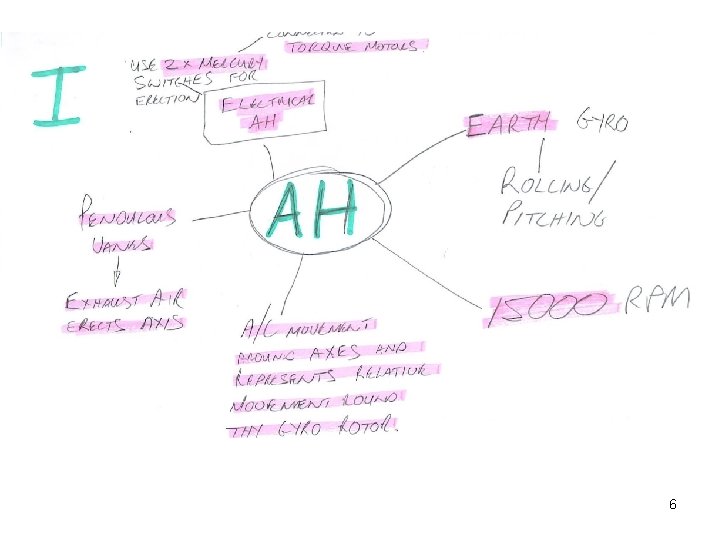 CONNECTED TO
TORQUE MOTORS.
I
USE 2 X MERCURY
SWITCHES FOR
ERECTION
ELECTRICAL
AH
EARTH GYRO
ROLLING/
PITCHING
AH
PENDULOUS
VANES
EXHAUST AIR
ERECTS AXIS
15000 RPM
A/C MOVEMENT
AROUND AXES AND
REPRESENTS RELATIVE
MOVEMENT ROUND
THY GYRO ROTOR.
6